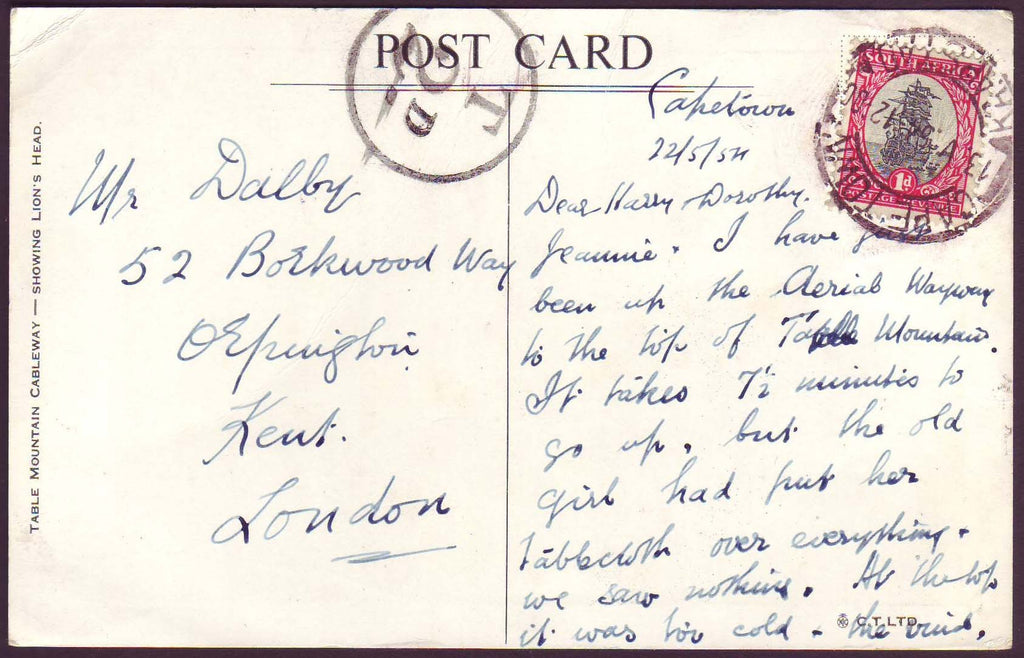 POST CARD
TABLE MOUNTAIN CABLEWAY — SHOWING LION'S HEAD.
T
D
SOUTH AFRICA
1d
POSTAGE REVENUE
Capetown
22/5/54
Mr Dalby
52 Borkwood Way
Orpington
Kent.
London
Dear Harry Dorothy.
Jeannie. I have just
been up the Aerial Wayway
to the top of Table Mountain.
It takes 7½ minutes to
go up, but the old
girl had put her
tablecloth over everything &
we saw nothing. At the top
it was too cold & the wind,
© C.T. LTD.